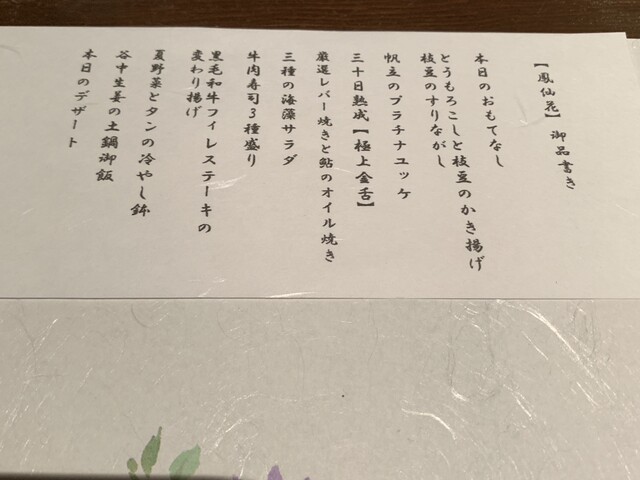 【鳳仙花】 御品書き
本日のおもてなし
とうもろこしと枝豆のかき揚げ
枝豆のすりながし
帆立のプラチナユッケ
三十日熟成【極上金舌】
厳選レバー焼きと鮎のオイル焼き
三種の海藻サラダ
牛肉寿司3種盛り
黒毛和牛フィレステーキの
変わり揚げ
夏野菜とタンの冷やし鉢
谷中生姜の土鍋御飯
本日のデザート